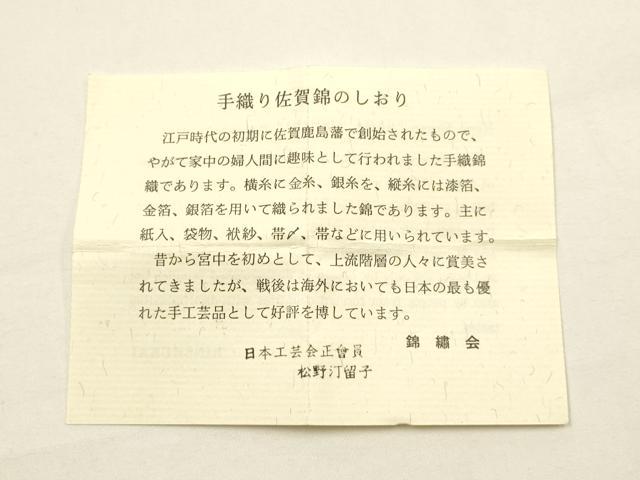 手織り佐賀錦のしおり
江戸時代の初期に佐賀鹿島藩で創始されたもので、
やがて家中の婦人間に趣味として行われました手織錦
織であります。横糸に金糸、銀糸を、縦糸には漆箔、
金箔、銀箔を用いて織られました錦であります。主に
紙入、袋物、袱紗、帯〆、帯などに用いられています。
昔から宮中を初めとして、上流階層の人々に賞美さ
れてきましたが、戦後は海外においても日本の最も優
れた手工芸品として好評を博しています。
錦繡会
日本工芸会正會員
松野汀留子